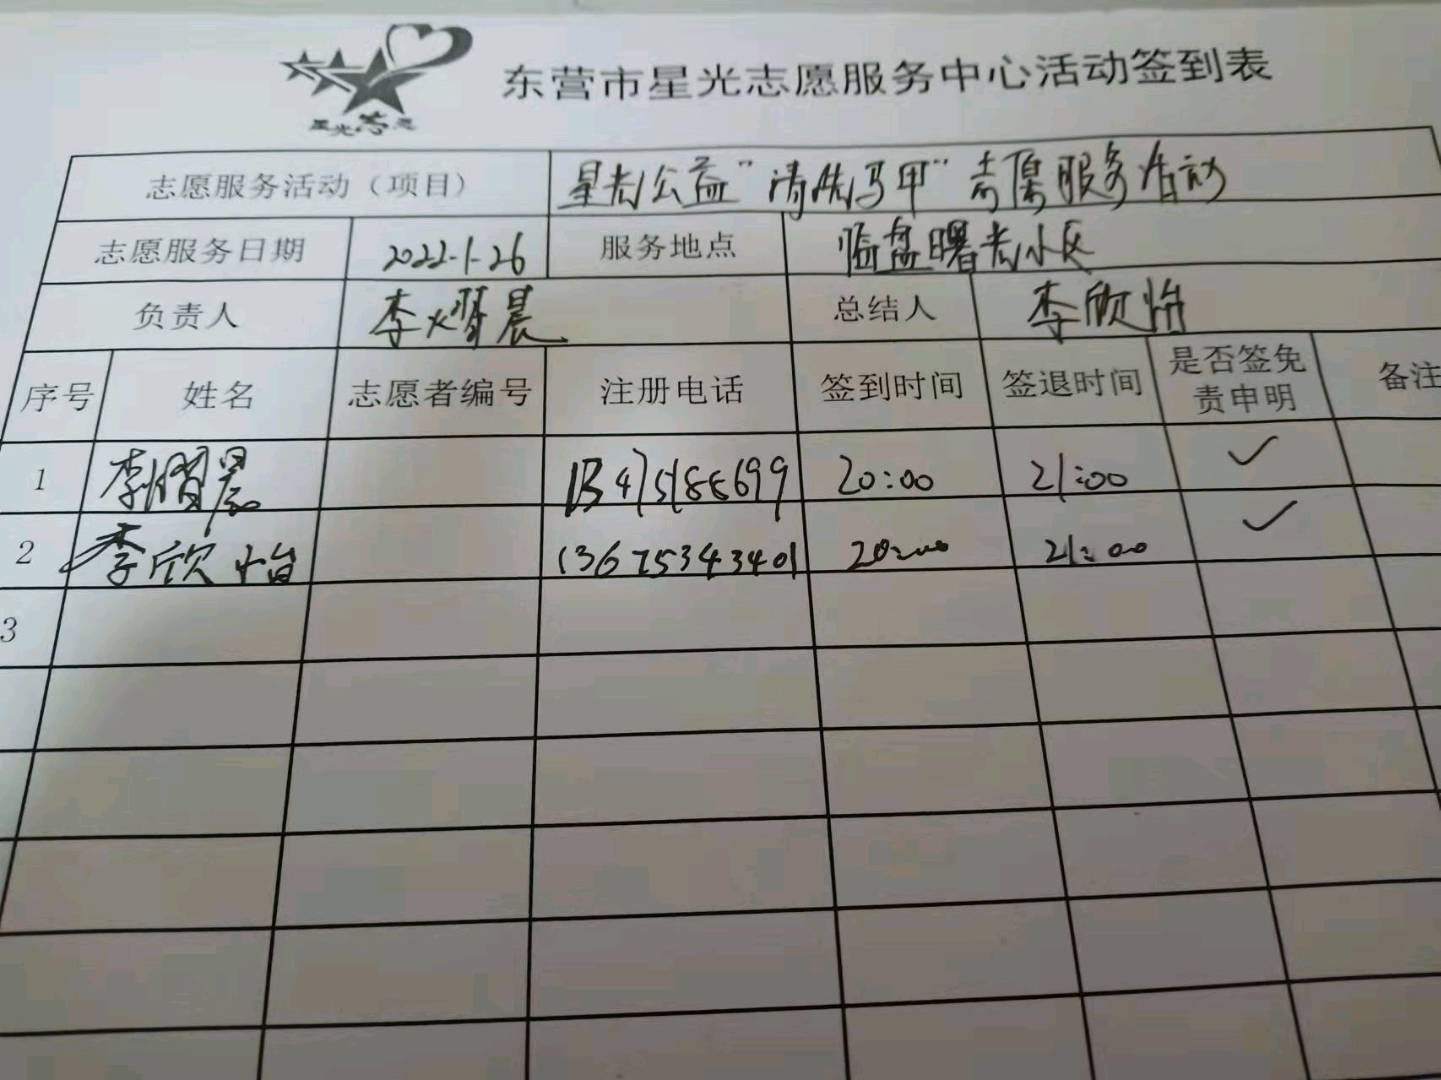 星光志愿
东营市星光志愿服务中心活动签到表
志愿服务活动（项目） 星光公益“清洗马甲”志愿服务活动
志愿服务日期 2022.1.26 服务地点 临盘曙光小区
负责人 李熠晨 总结人 李欣怡
序号 姓名 志愿者编号 注册电话 签到时间 签退时间 是否签免责申明 备注
1 李熠晨 20:00 21:00 ✓
2 李欣怡 13675343401 20:00 21:00 ✓
3